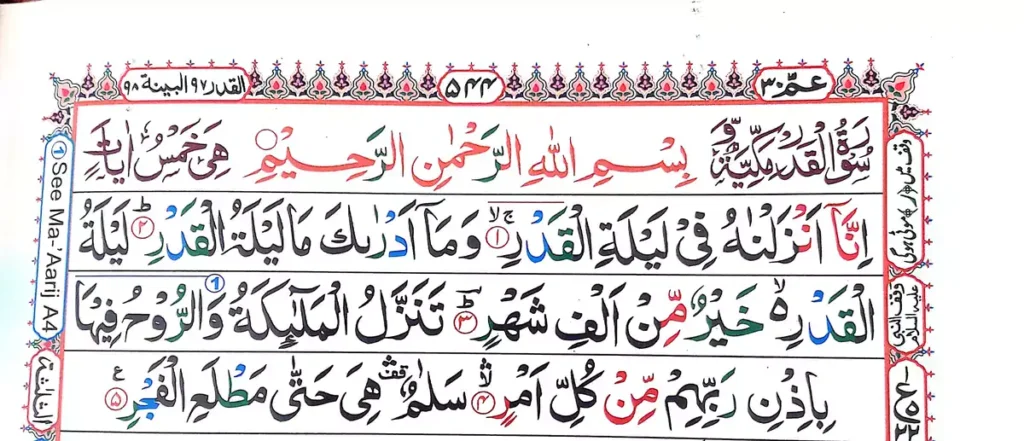 عمّ ٣٠
۵۴۴
القدر ٩٧ البينة ٩٨
سُوْرَةُ الْقَدْرِ مَكِّيَّةٌ وَّ بِسْمِ اللهِ الرَّحْمٰنِ الرَّحِيْمِ هِىَ خَمْسُ اٰيَاتٍ
اِنَّاۤ اَنْزَلْنٰهُ فِىْ لَيْلَةِ الْقَدْرِ ۚۖ ١ وَمَاۤ اَدْرٰىكَ مَا لَيْلَةُ الْقَدْرِ ؕ ٢ لَيْلَةُ
الْقَدْرِ ۙ خَيْرٌ مِّنْ اَلْفِ شَهْرٍ ؕ ٣ تَنَزَّلُ الْمَلٰٓٮِٕكَةُ وَالرُّوْحُ فِيْهَا 1
بِاِذْنِ رَبِّهِمْ مِّنْ كُلِّ اَمْرٍ ۛۙ ۴ سَلٰمٌ ۛ قف هِىَ حَتّٰى مَطْلَعِ الْفَجْرِ ۵ ع
1 See Ma-'Aarij A4
الثلثة
وقف النبى عليه السلام